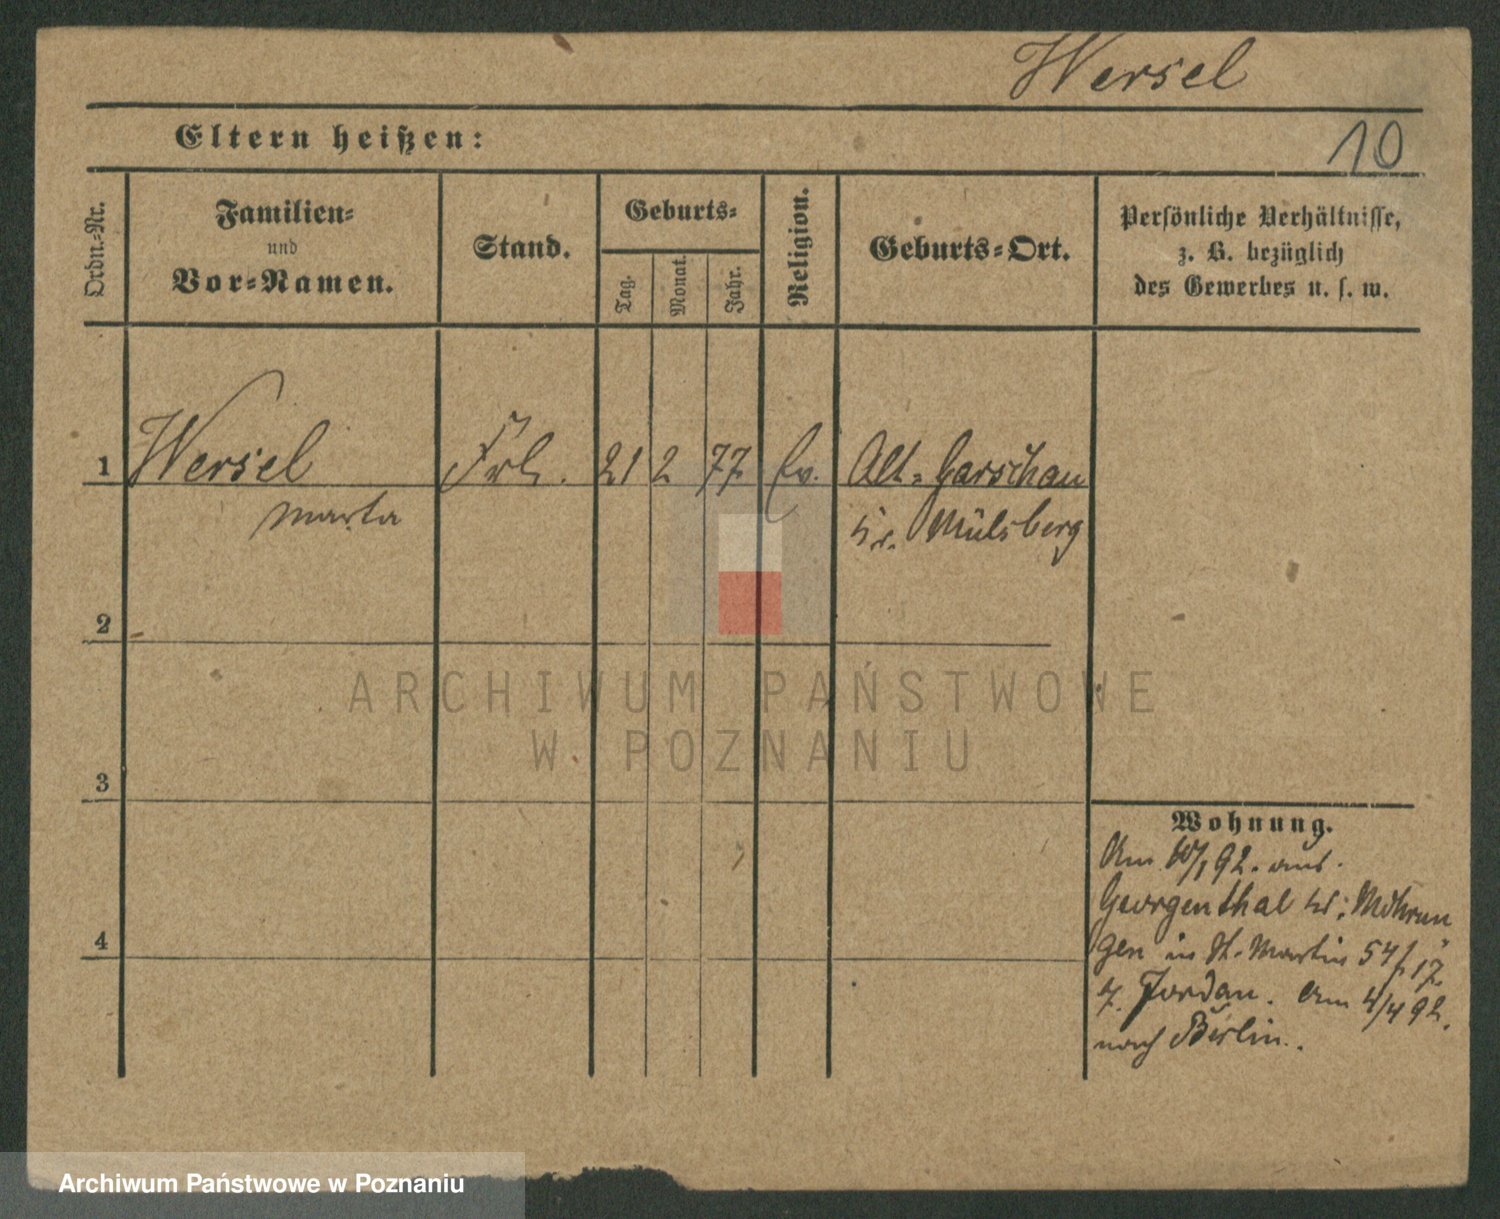 Wersel
10
Eltern heißen:
Ordn.-Nr.
Familien-
und
Vor-Namen.
Stand.
Geburts-
Tag.
Monat.
Jahr.
Religion.
Geburts-Ort.
Persönliche Verhältnisse,
z. B. bezüglich
des Gewerbes u. s. w.
1 Wersel Frl. 21 2 77 Ev. Alt-Garschau
Marta Kr.
2
3
4
Wohnung.
Am 92. aus
Georgenthal Kr. Mohrun
gen in St. Martin 54
Jordan. Am 4/4 92.
nach Berlin.
ARCHIWUM PAŃSTWOWE
W POZNANIU
Archiwum Państwowe w Poznaniu